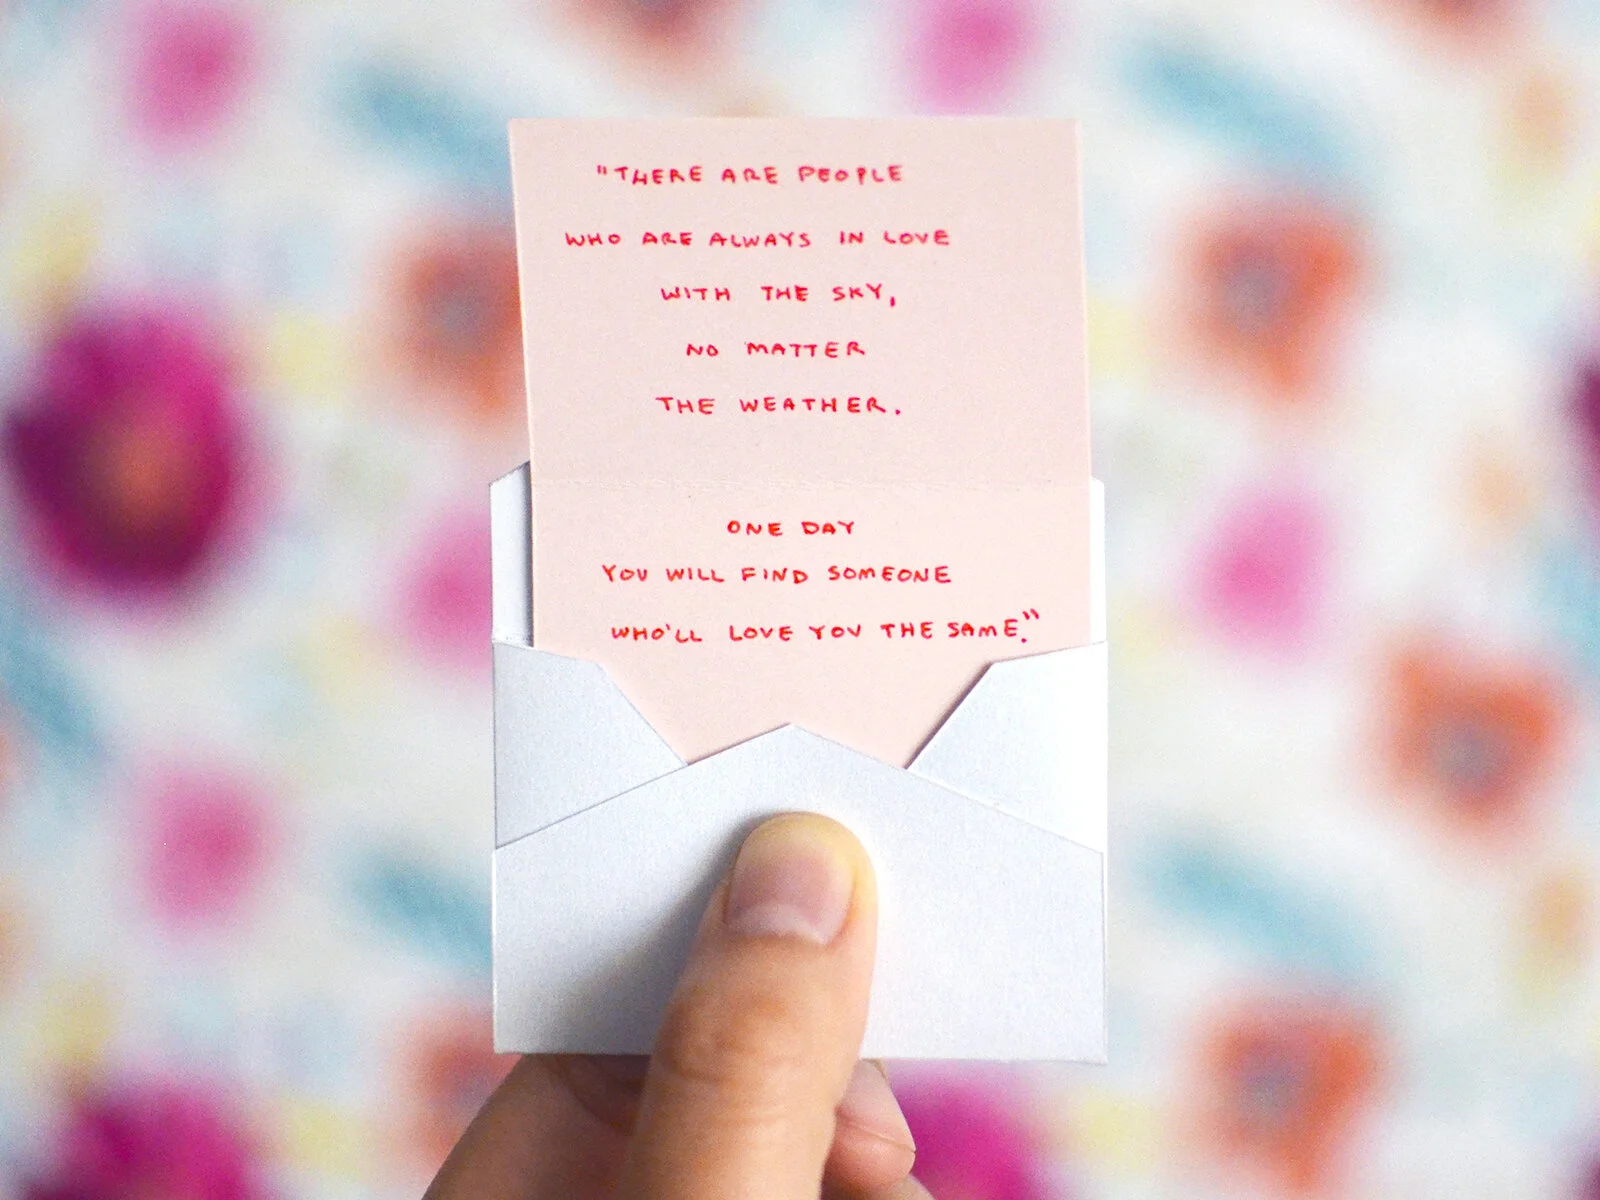 "THERE ARE PEOPLE
WHO ARE ALWAYS IN LOVE
WITH THE SKY,
NO MATTER
THE WEATHER.
ONE DAY
YOU WILL FIND SOMEONE
WHO'LL LOVE YOU THE SAME."